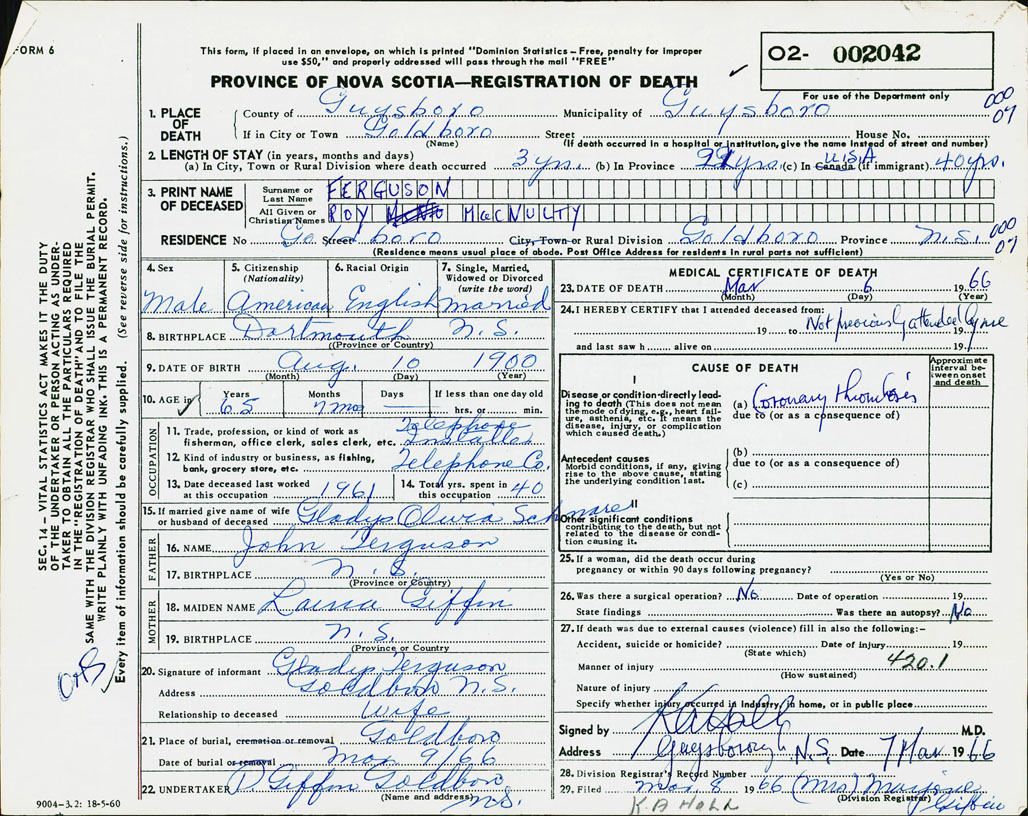 FORM 6
This form, if placed in an envelope, on which is printed "Dominion Statistics – Free, penalty for improper
use $50," and properly addressed will pass through the mail "FREE"
PROVINCE OF NOVA SCOTIA—REGISTRATION OF DEATH
O2- 002042
For use of the Department only
000
07
1. PLACE OF DEATH County of Guysboro Municipality of Guysboro
If in City or Town Goldboro Street House No.
(Name) (If death occurred in a hospital or institution, give the name instead of street and number)
2. LENGTH OF STAY (in years, months and days)
(a) In City, Town or Rural Division where death occurred 3 yrs. (b) In Province yrs. (c) In Canada U.S.A (if immigrant) 40 yrs.
3. PRINT NAME OF DECEASED
Surname or Last Name FERGUSON
All Given or Christian Names ROY MACNULTY
RESIDENCE No Goldboro Street City, Town or Rural Division Goldboro Province N.S.
000
07
(Residence means usual place of abode. Post Office Address for residents in rural parts not sufficient)
4. Sex Male
5. Citizenship (Nationality) American
6. Racial Origin English
7. Single, Married, Widowed or Divorced (write the word) Married
8. BIRTHPLACE Dartmouth N.S.
(Province or Country)
9. DATE OF BIRTH Aug. 10 1900
(Month) (Day) (Year)
10. AGE in Years 65 Months 7 mos Days — If less than one day old hrs. or min.
OCCUPATION
11. Trade, profession, or kind of work as fisherman, office clerk, sales clerk, etc. Telephone Installer
12. Kind of industry or business, as fishing, bank, grocery store, etc. Telephone Co.
13. Date deceased last worked at this occupation 1961
14. Total yrs. spent in this occupation 40
15. If married give name of wife or husband of deceased Gladys Olivia Schnare
FATHER
16. NAME John Ferguson
17. BIRTHPLACE N.S.
(Province or Country)
MOTHER
18. MAIDEN NAME Giffin
19. BIRTHPLACE N.S.
(Province or Country)
20. Signature of informant Gladys Ferguson
Address Goldboro N.S.
Relationship to deceased Wife
21. Place of burial, cremation or removal Goldboro
Date of burial or removal Mar 9/66
22. UNDERTAKER D Giffin Goldboro
(Name and address) N.S.
9004–3.2: 18-5-60
MEDICAL CERTIFICATE OF DEATH
23. DATE OF DEATH Mar 6 1966
(Month) (Day) (Year)
24. I HEREBY CERTIFY that I attended deceased from:
19 to Not previously attended by me 19
and last saw h alive on 19
CAUSE OF DEATH
Approximate interval between onset and death
I
Disease or condition directly leading to death (This does not mean the mode of dying, e.g., heart failure, asthenia, etc. It means the disease, injury, or complication which caused death.)
(a) Coronary thrombosis
due to (or as a consequence of)
Antecedent causes
Morbid conditions, if any, giving rise to the above cause, stating the underlying condition last.
(b)
due to (or as a consequence of)
(c)
II
Other significant conditions
contributing to the death, but not related to the disease or condition causing it.
25. If a woman, did the death occur during
pregnancy or within 90 days following pregnancy?
(Yes or No)
26. Was there a surgical operation? No Date of operation 19
State findings Was there an autopsy? No
27. If death was due to external causes (violence) fill in also the following:–
Accident, suicide or homicide? Date of injury 19
(State which)
420.1
Manner of injury
(How sustained)
Nature of injury
Specify whether injury occurred in industry, in home, or in public place
Signed by M.D.
Address Guysborough N.S. Date 7 Mar 1966
28. Division Registrar's Record Number
29. Filed Mar. 8 1966 (Mrs) Marjorie Giffin
(Division Registrar)
K A HALL
SEC. 14 – VITAL STATISTICS ACT MAKES IT THE DUTY
OF THE UNDERTAKER OR PERSON ACTING AS UNDERTAKER
TO OBTAIN ALL THE PARTICULARS REQUIRED
IN THE "REGISTRATION OF DEATH" AND TO FILE THE
SAME WITH THE DIVISION REGISTRAR WHO SHALL ISSUE THE BURIAL PERMIT.
WRITE PLAINLY WITH UNFADING INK. THIS IS A PERMANENT RECORD.
Every item of information should be carefully supplied. (See reverse side for instructions.)